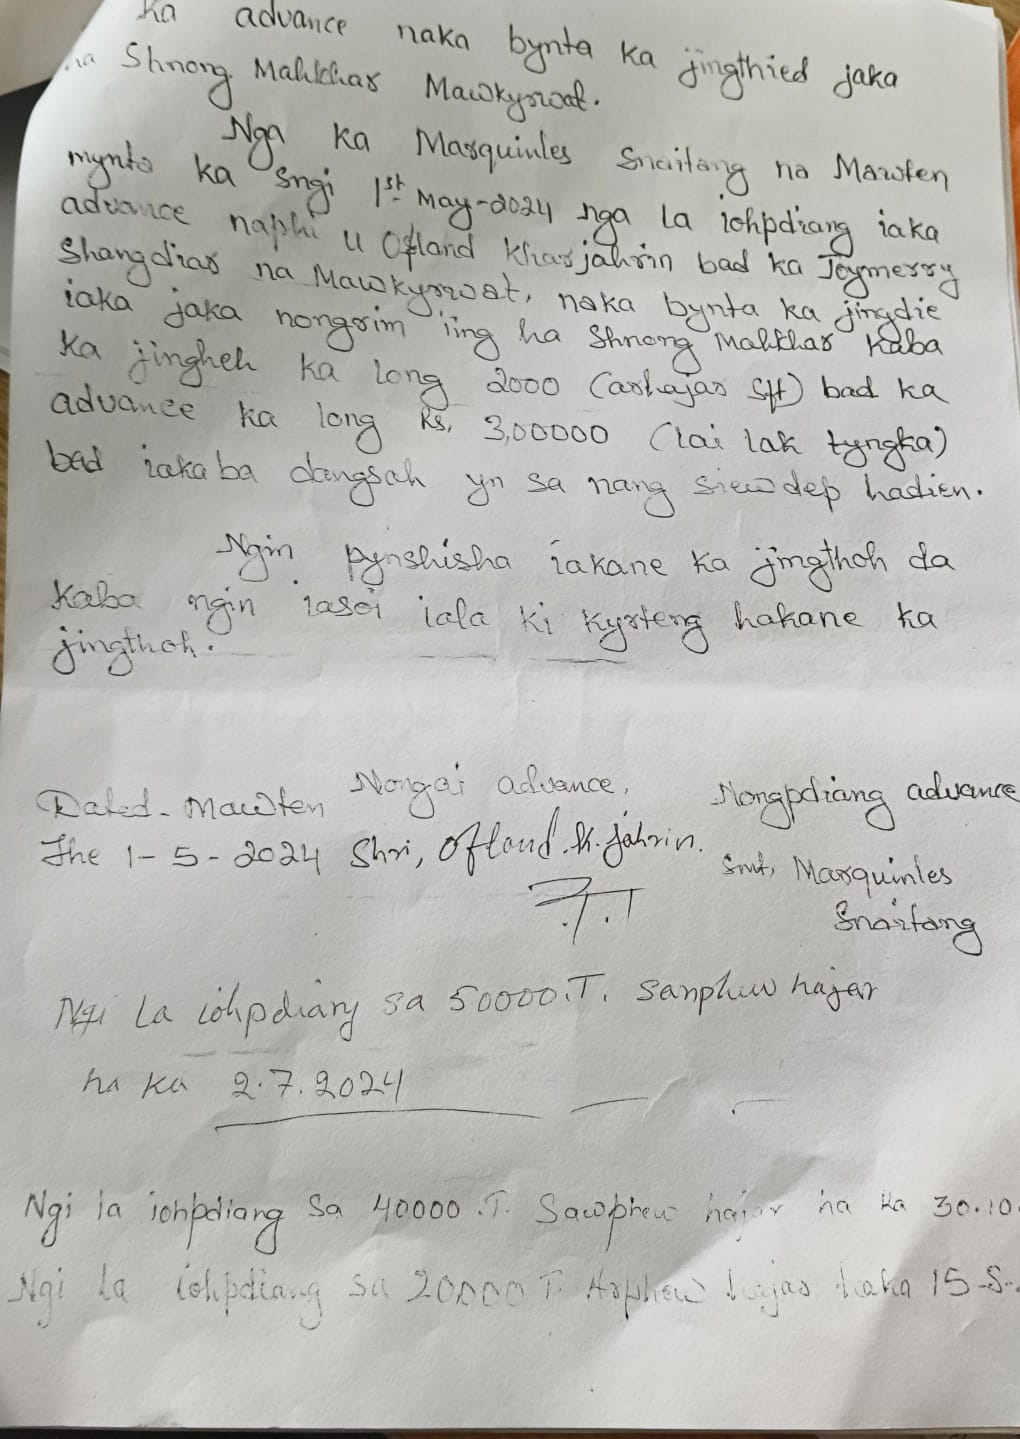 ka advance naka bynta ka jingthied jaka
ha Shnong Mahkhar Mawkyrwat.
Nga ka Marquinles Snaitang na Mawten
mynta ka sngi 1st May-2024 nga la iohpdiang iaka
advance naphi u Ofland Kharjahrin bad ka Joymerry
Shangdiar na Mawkyrwat, naka bynta ka jingdie
iaka jaka nongrim iing ha Shnong Mahkhar kaba
ka jingheh ka long 2000 (arhajar Sft) bad ka
advance ka long Rs, 3,00000 (lai lak tyngka)
bad iakaba dangsah yn sa nang siewdep hadien.
Ngin pynshisha iakane ka jingthoh da
kaba ngin iasoi iala ki kyrteng hakane ka
jingthoh.
Dated - Mawten Nongai advance, Nongpdiang advance
The 1-5-2024 Shri, Ofland.kh.Jahrin. Smt, Marquinles
Snaitang
Ngi La iohpdiang sa 50000.T. sanphew hajar
ha ka 2.7.2024
Ngi la iohpdiang sa 40000.T. Sawphew hajar ha ka 30.10.
Ngi la iohpdiang sa 20000 T. Arphew hajar haka 15-